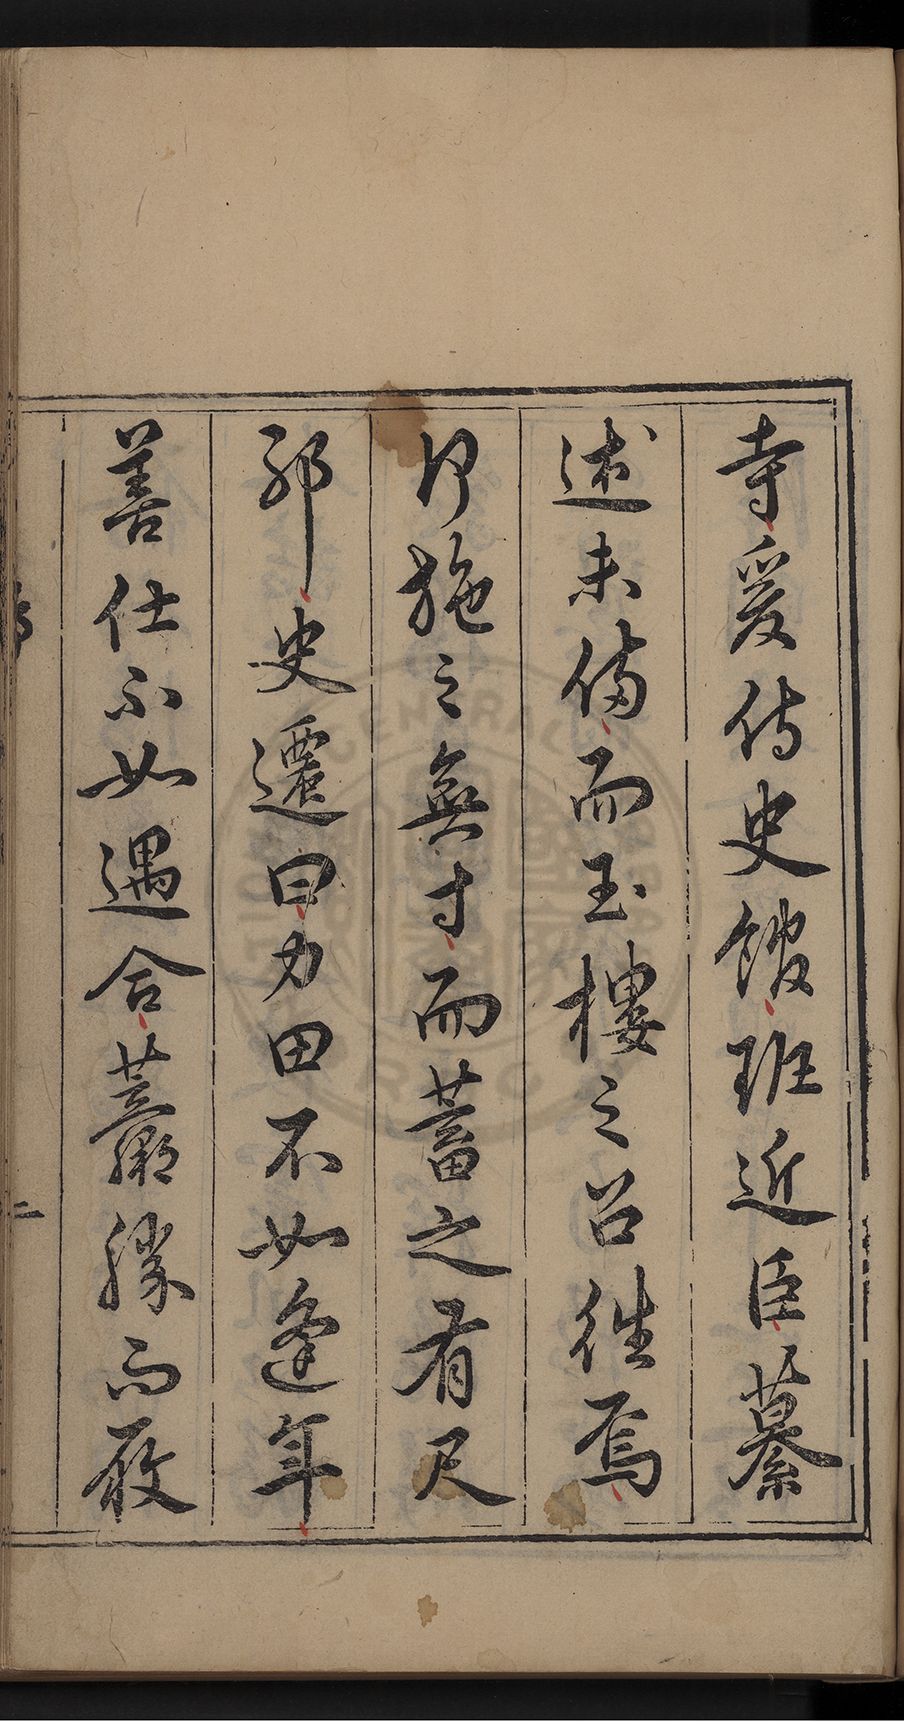 寺爰侍史館班近臣纂
述未備而玉樓之召徃焉
何施之無寸而蓄之有尺
邪史遷曰力田不如逢年
善仕不如遇合勝而
二